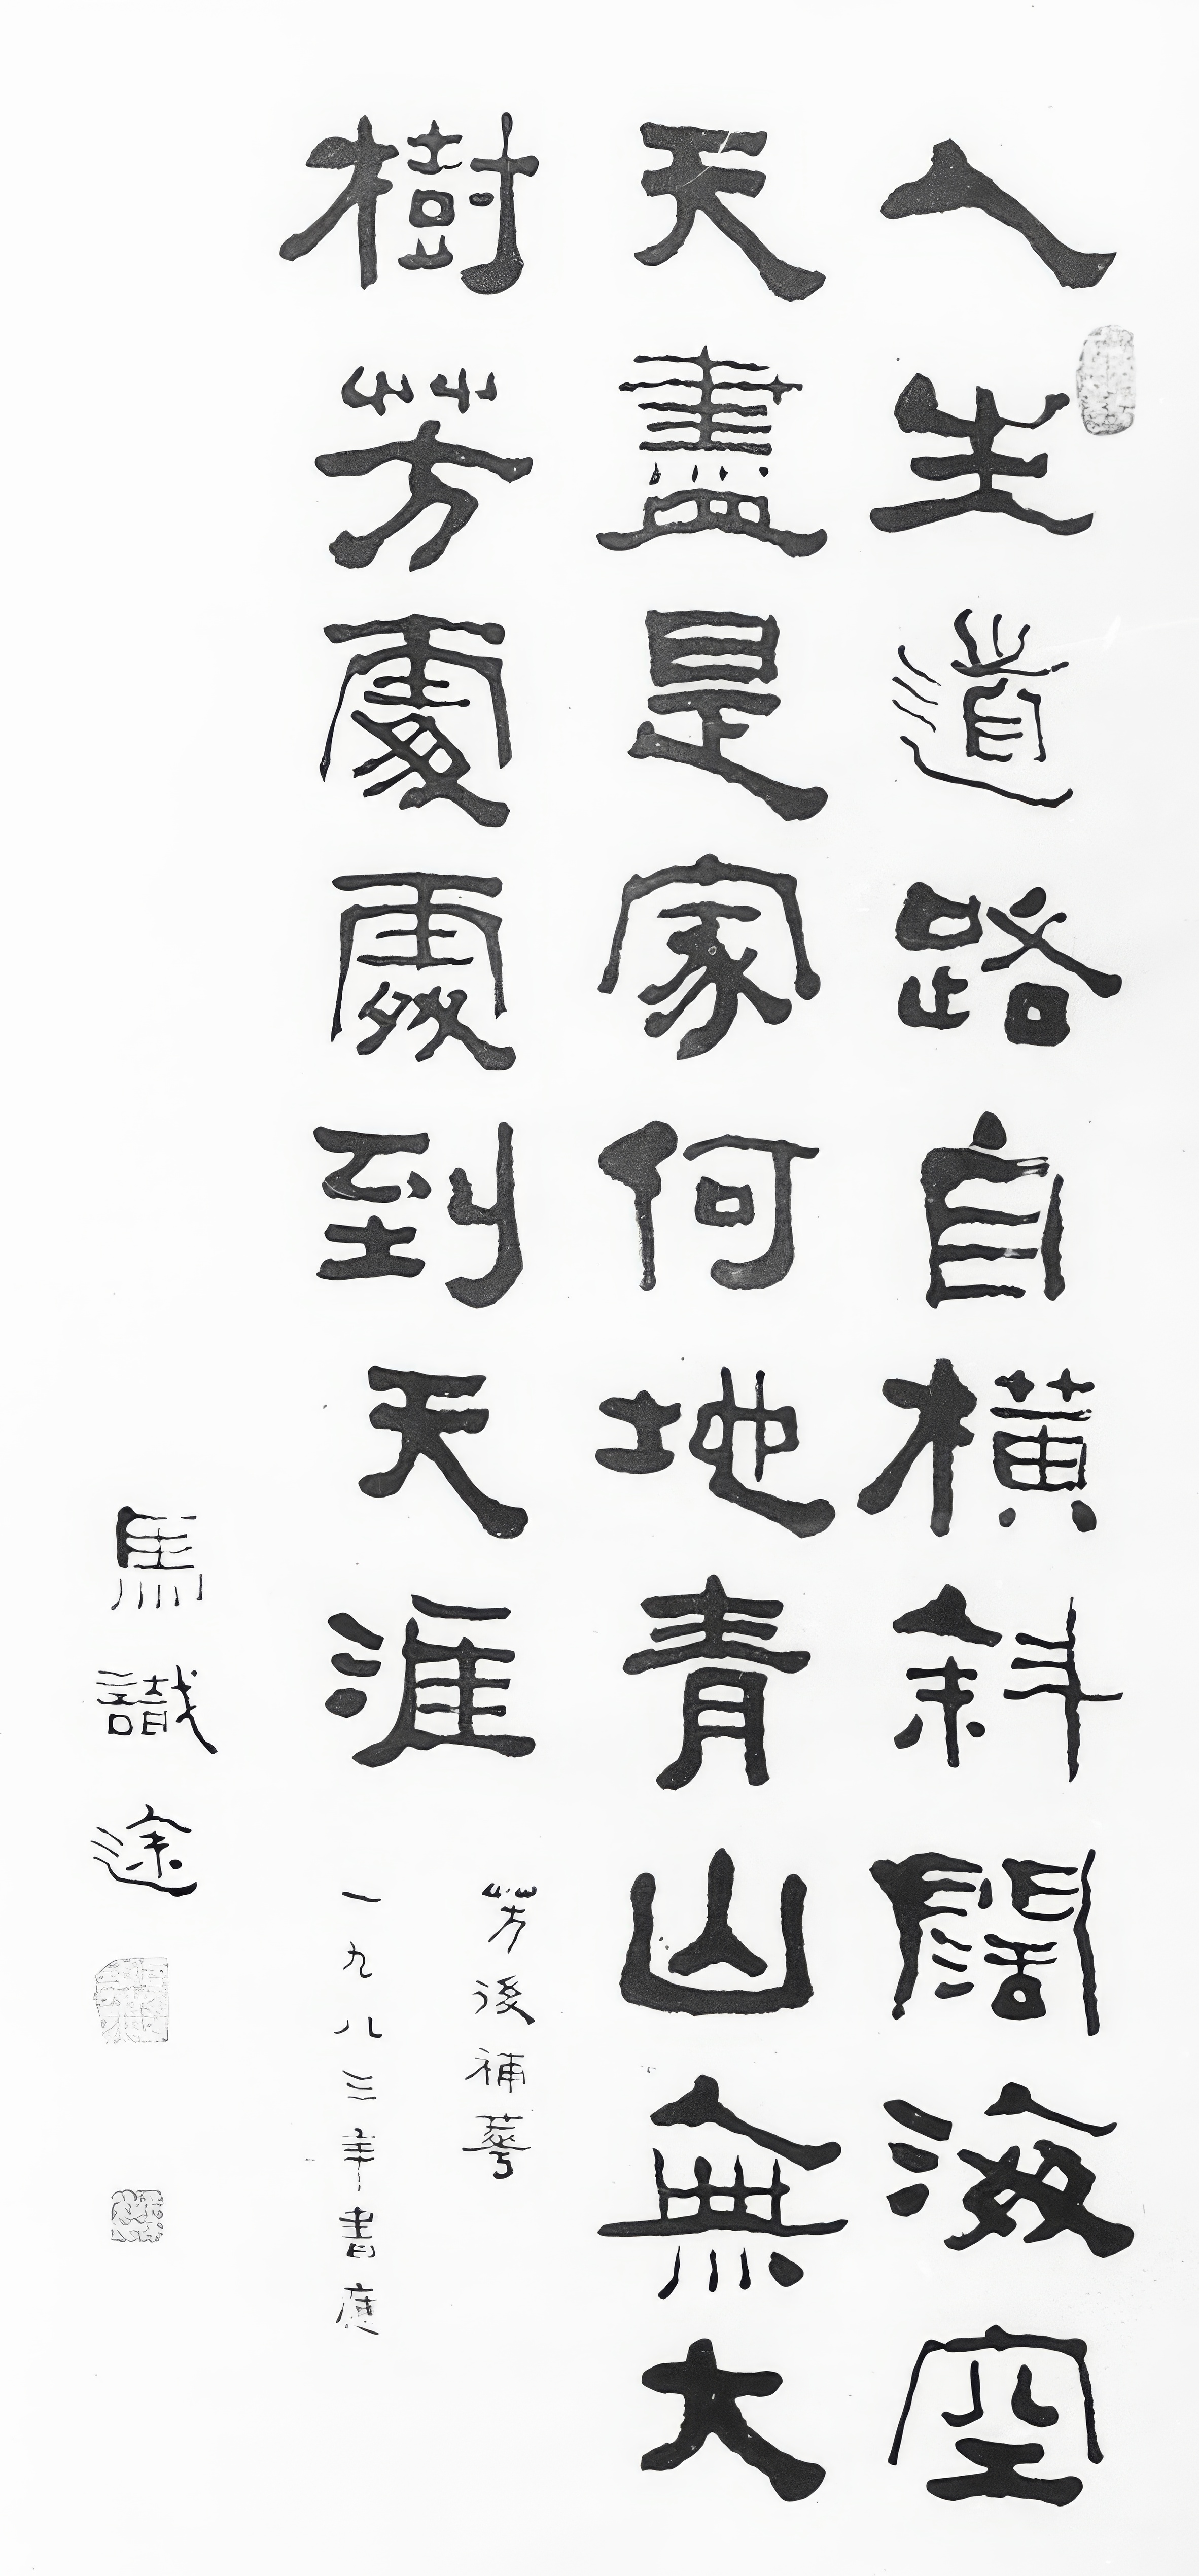 人生道路自橫斜闊海空
天盡是家何地青山無大
樹芳處處到天涯
芳後補
一九八三年書
馬識途